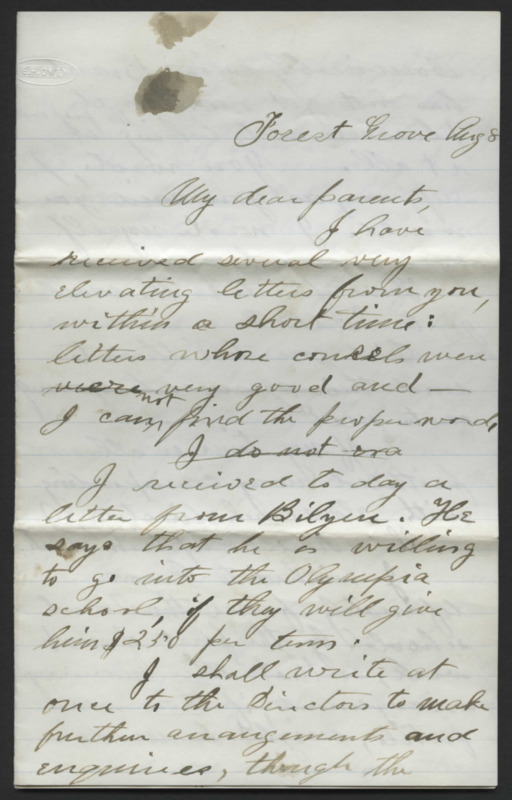 Forest Grove Aug 8
My dear parents,
I have
received several very
elevating letters from you,
within a short time:
letters whose councels were
were very good and —
I can not find the proper words
I do not
I received to day a
letter from Bilyeu. He
says that he is willing
to go into the Olympia
school, if they will give
him $250 per term.
I shall write at
once to the Directors to make
further arrangements and
enquiries, though the